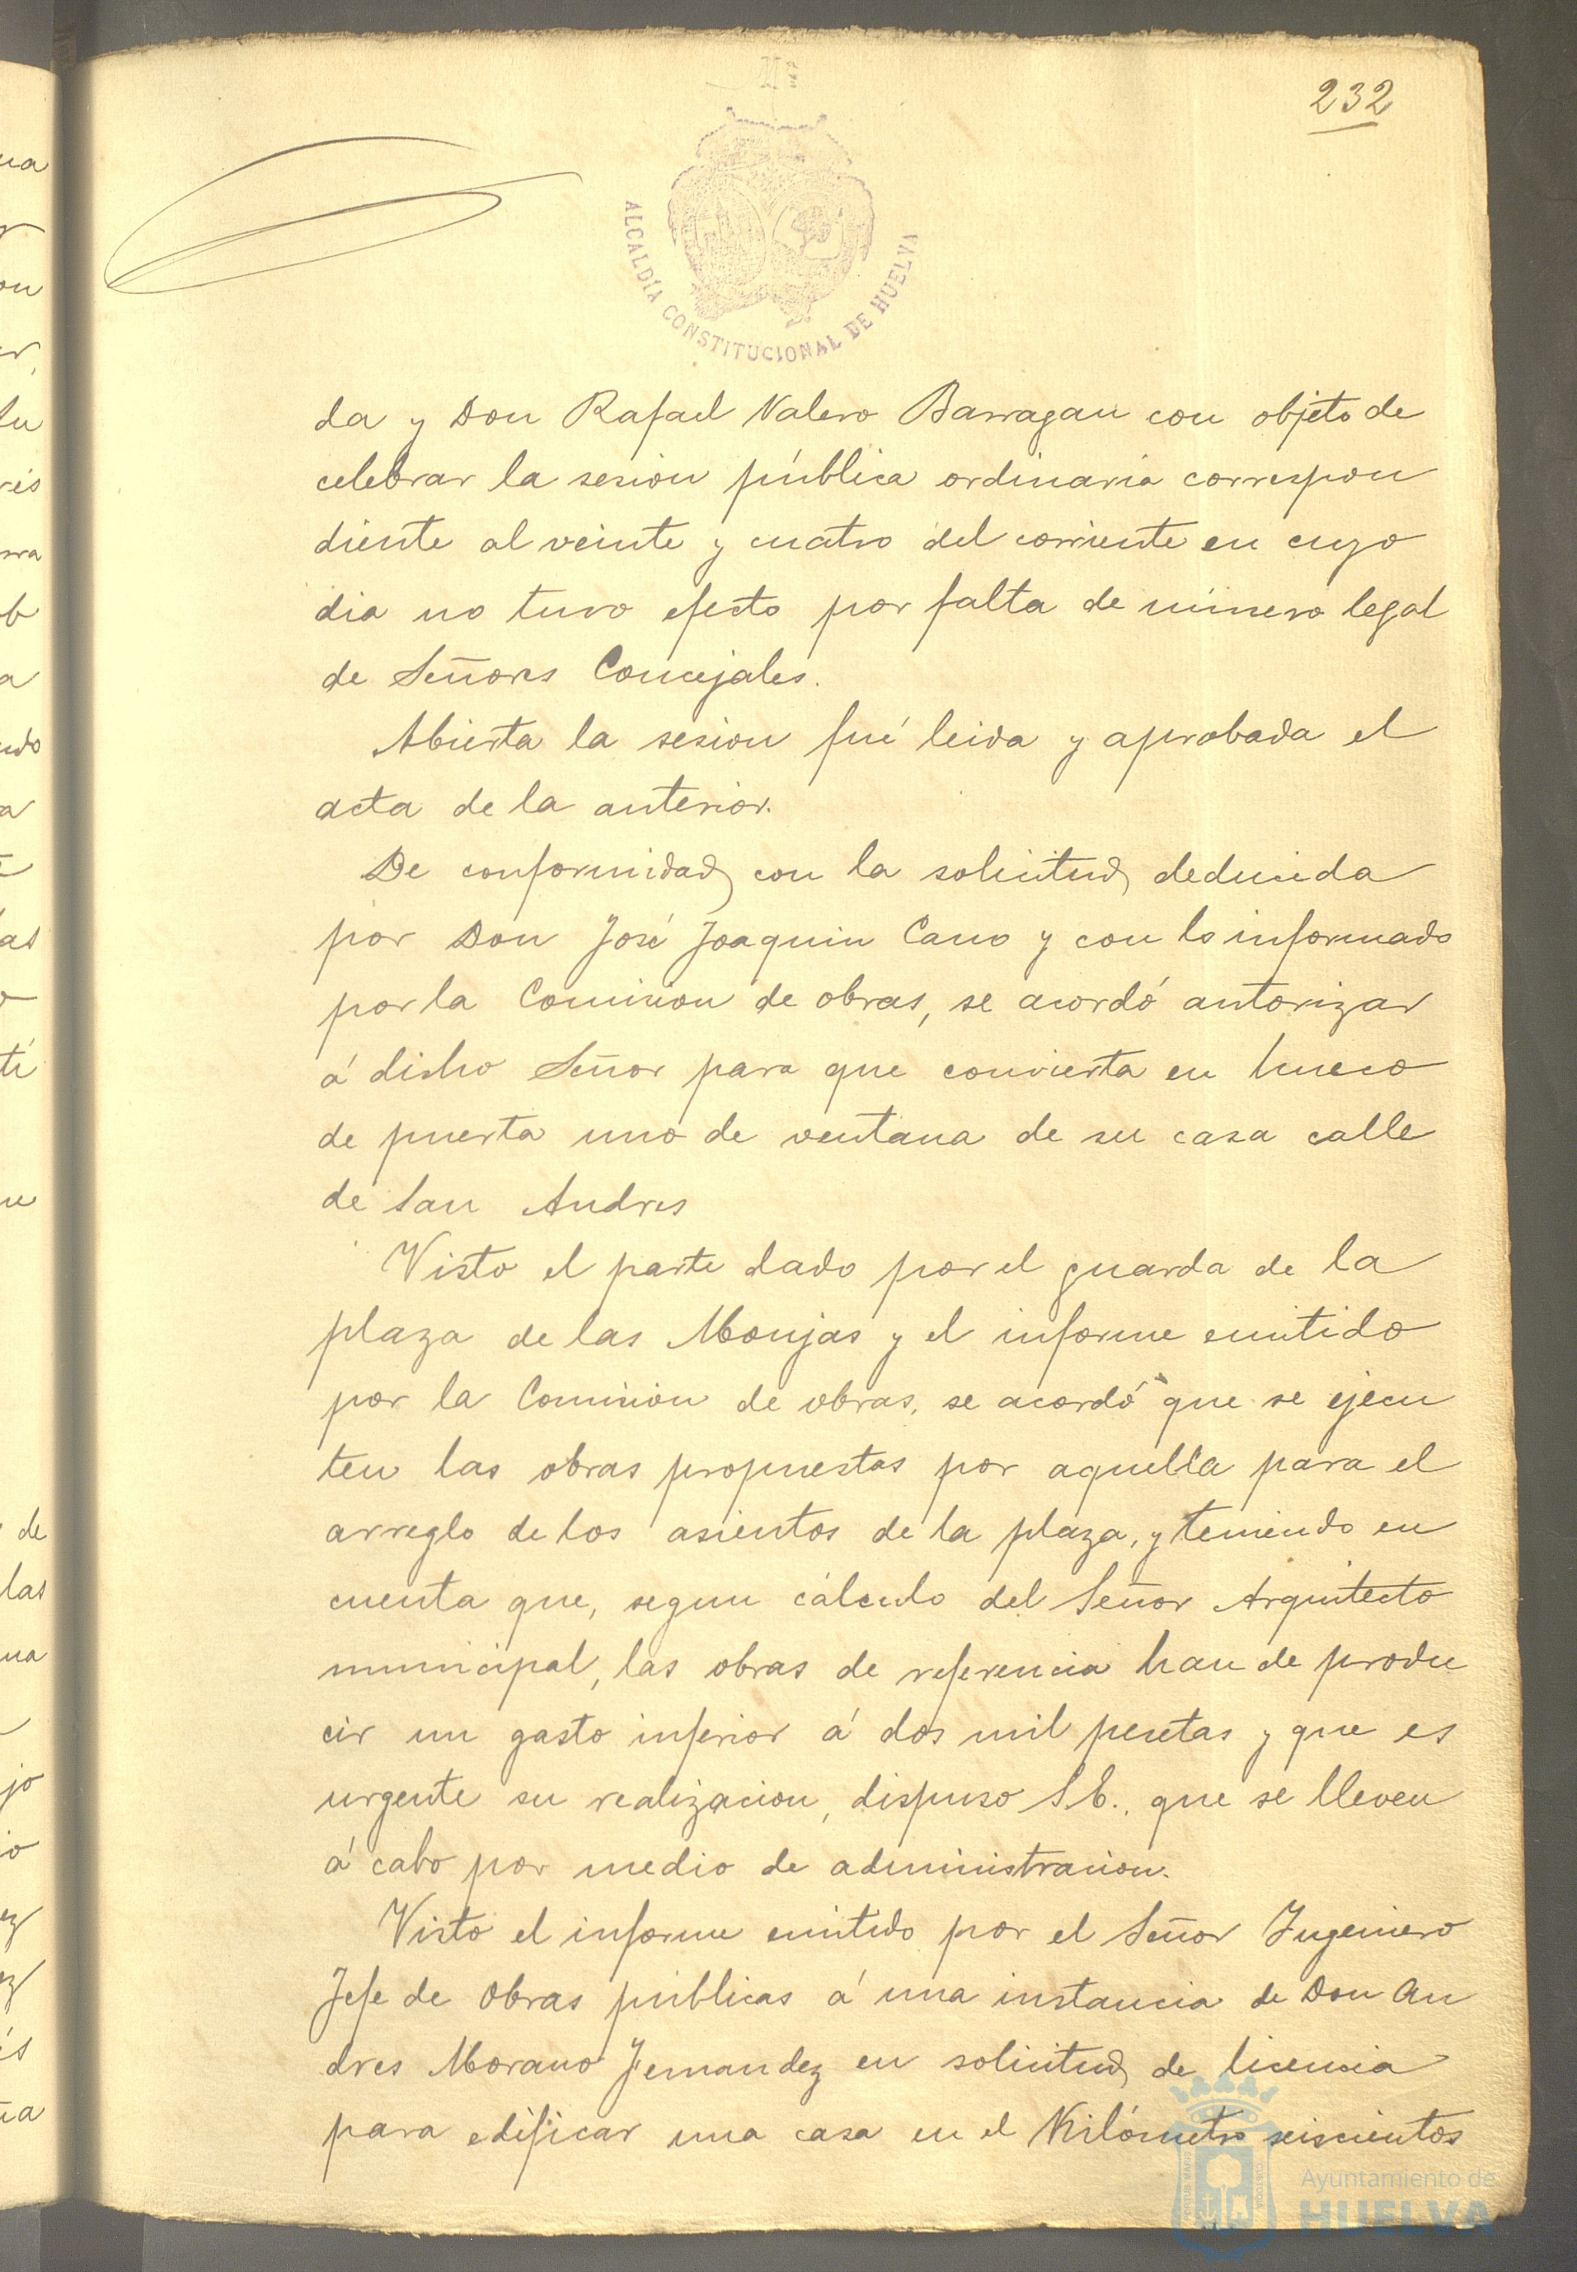 232
ALCALDÍA CONSTITUCIONAL DE HUELVA
da y Don Rafael Valero Barragan con objeto de
celebrar la sesion pública ordinaria correspon
diente al veinte y cuatro del corriente en cuyo
dia no tuvo efecto por falta de número legal
de Señores Concejales.
Abierta la sesion fué leida y aprobada el
acta de la anterior.
De conformidad con la solicitud deducida
por Don José Joaquin Cano y con lo informado
por la Comision de obras, se acordó autorizar
á dicho Señor para que convierta en hueco
de puerta uno de ventana de su casa calle
de San Andres
Visto el parte dado por el guarda de la
plaza de las Monjas y el informe emitido
por la Comision de obras, se acordó que se ejecu
ten las obras propuestas por aquella para el
arreglo de los asientos de la plaza, y teniendo en
cuenta que, segun cálculo del Señor Arquitecto
municipal, las obras de referencia han de produ
cir un gasto inferior á dos mil pesetas y que es
urgente su realizacion, dispuso S.E., que se lleven
á cabo por medio de administracion.
Visto el informe emitido por el Señor Ingeniero
Jefe de Obras públicas á una instancia de Don An
dres Morano Fernandez en solicitud de licencia
para edificar una casa en el Kilómetro seiscientos
Ayuntamiento de
HUELVA